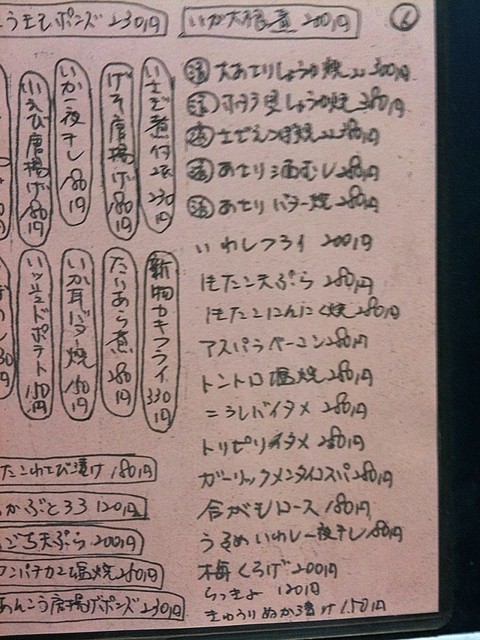 ポンズ 230円
いか大根煮 200円
6
活 大あさりしょうゆ焼 300円
活 ホタテ貝しょうゆ焼 380円
活 さざえつぼ焼 280円
活 あさり酒むし 280円
活 あさりバター焼 280円
いわしフライ 200円
ほたて天ぷら 280円
ほたてにんにく焼 280円
アスパラベーコン 280円
トントロ塩焼 280円
ニラレバイタメ 280円
トリピリイタメ 280円
ガーリックメンタイコスパ 280円
合がもロース 180円
うるめいわし一夜干し 180円
梅くらげ 200円
らっきょ 120円
きゅうりぬか漬け 150円
いさざ煮付 230円
げそ唐揚げ 180円
いか一夜干し 180円
小えび唐揚げ 180円
新物カキフライ 330円
たいあら煮 280円
いか耳バター焼 150円
ソッドポテト 150円
たこわさび漬け 180円
120円
ごち天ぷら 200円
塩焼 280円
あんこう唐揚げポンズ 230円